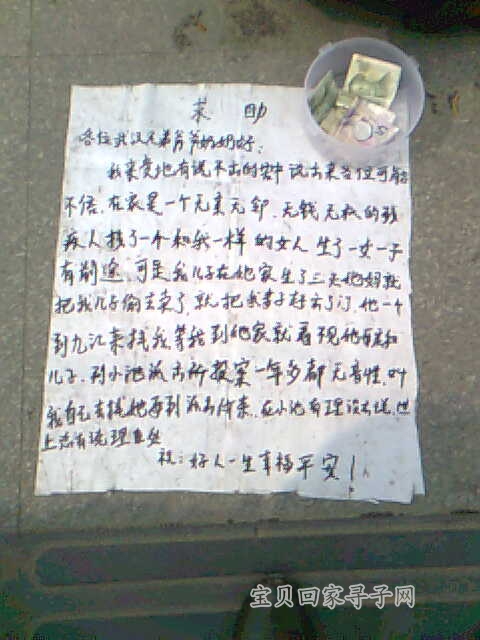 求助
各位武汉兄弟爷爷奶奶好:
我来贵地有说不出的苦 说出来各位可能
不信,在家是一个无亲无邻、无钱无权的残
疾人找了一个和我一样的女人 生了一女一子
有前途,可是我儿子在她家生了三天她妈就
把我儿子偷卖了,就把我妻子赶出了门,她一个
到九江来找我等我到她家就看不见她母亲和
儿子,到小池派出所报案一年多都无音性,叫
我自己去找她再到派出所来,在小池有理没去说,世
上总有说理的处
祝:好人一生幸福平安!
宝贝回家寻子网